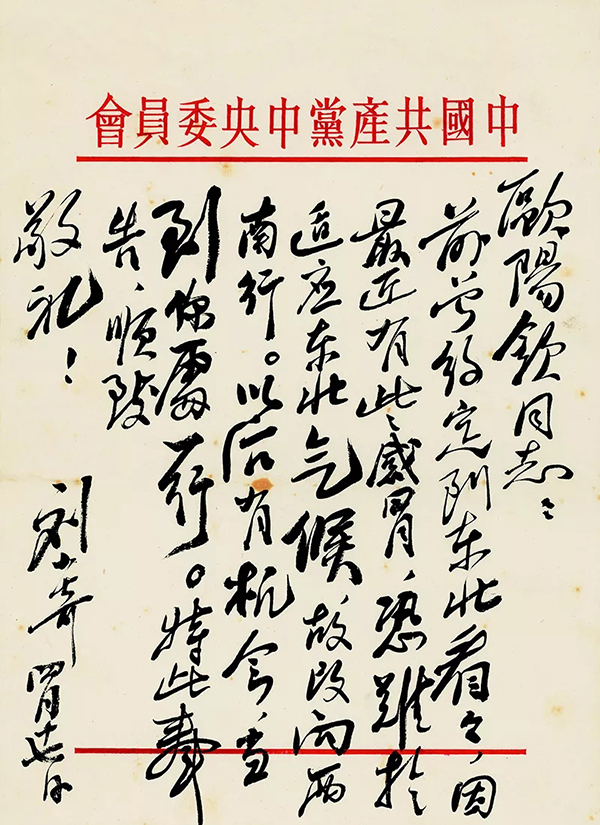 中國共產黨中央委員會
歐陽欽同志：
前曾約定到东北看看，因
最近有些感冒，恐難於
适应东北气候，故改向西
南行。以后有机会，当
到你處一行。特此奉
告，順致
敬礼！
刘少奇
四月十七日